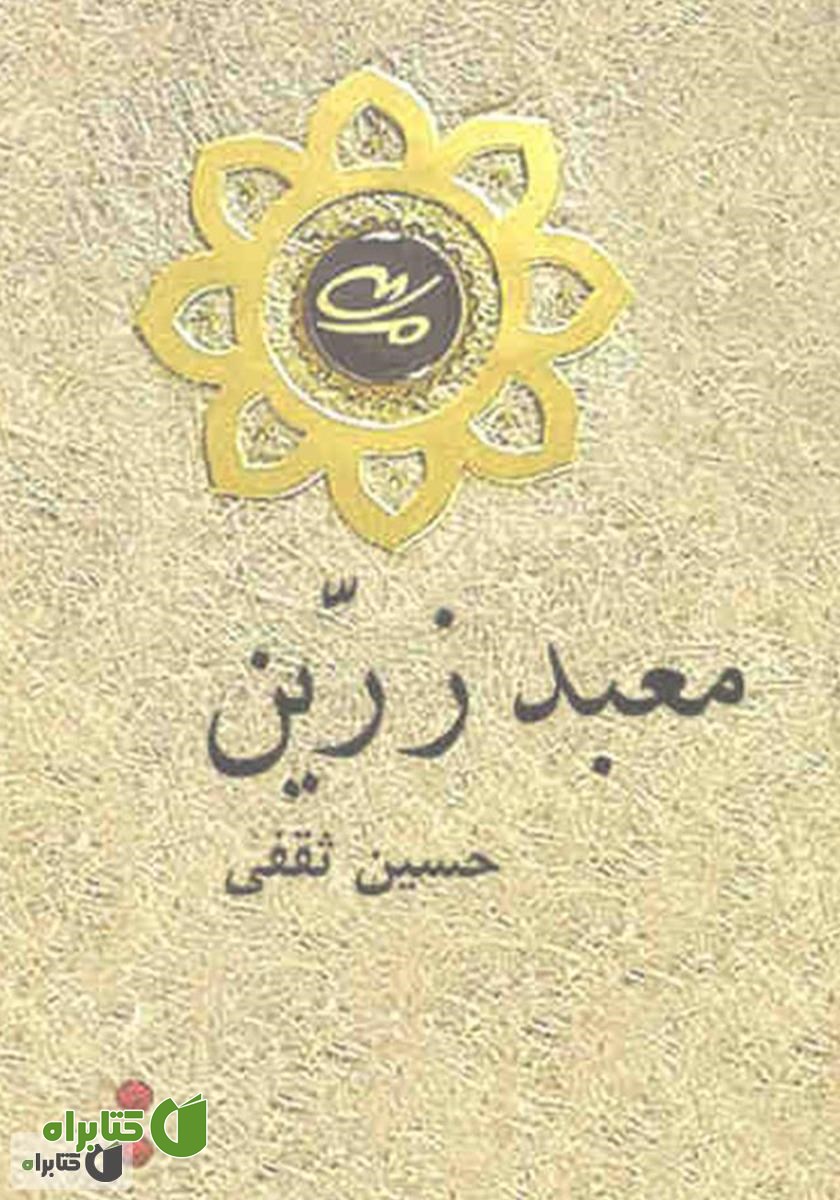 معبد زرّین
حسین ثقفی
کتابراه
کتابراه